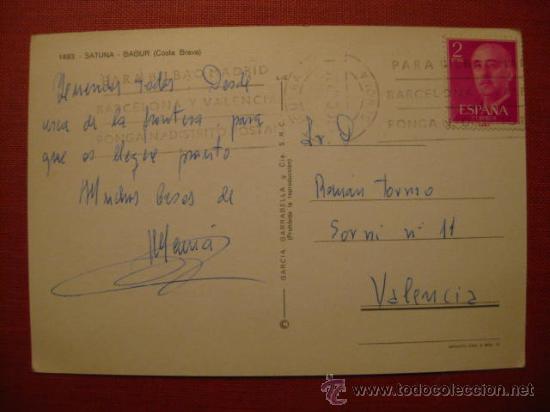 1493 - SATUNA - BAGUR (Costa Brava)
Queridos todos Desde
cerca de la frontera para
que os llegue pronto
Muchos besos de
María
PARA BILBAO, MADRID
BARCELONA Y VALENCIA
PONGA Nº DISTRITO POSTAL
PARA
BARCELONA
PONGA Nº
2
PTAS
ESPAÑA
CORREOS
Sr. D.
Román Tormo
Sorní nº 11
Valencia
GARCIA GARRABELLA y Cía. S.R.C.
(Prohibida la reproducción)
©
todocoleccion
http://www.todocoleccion.net